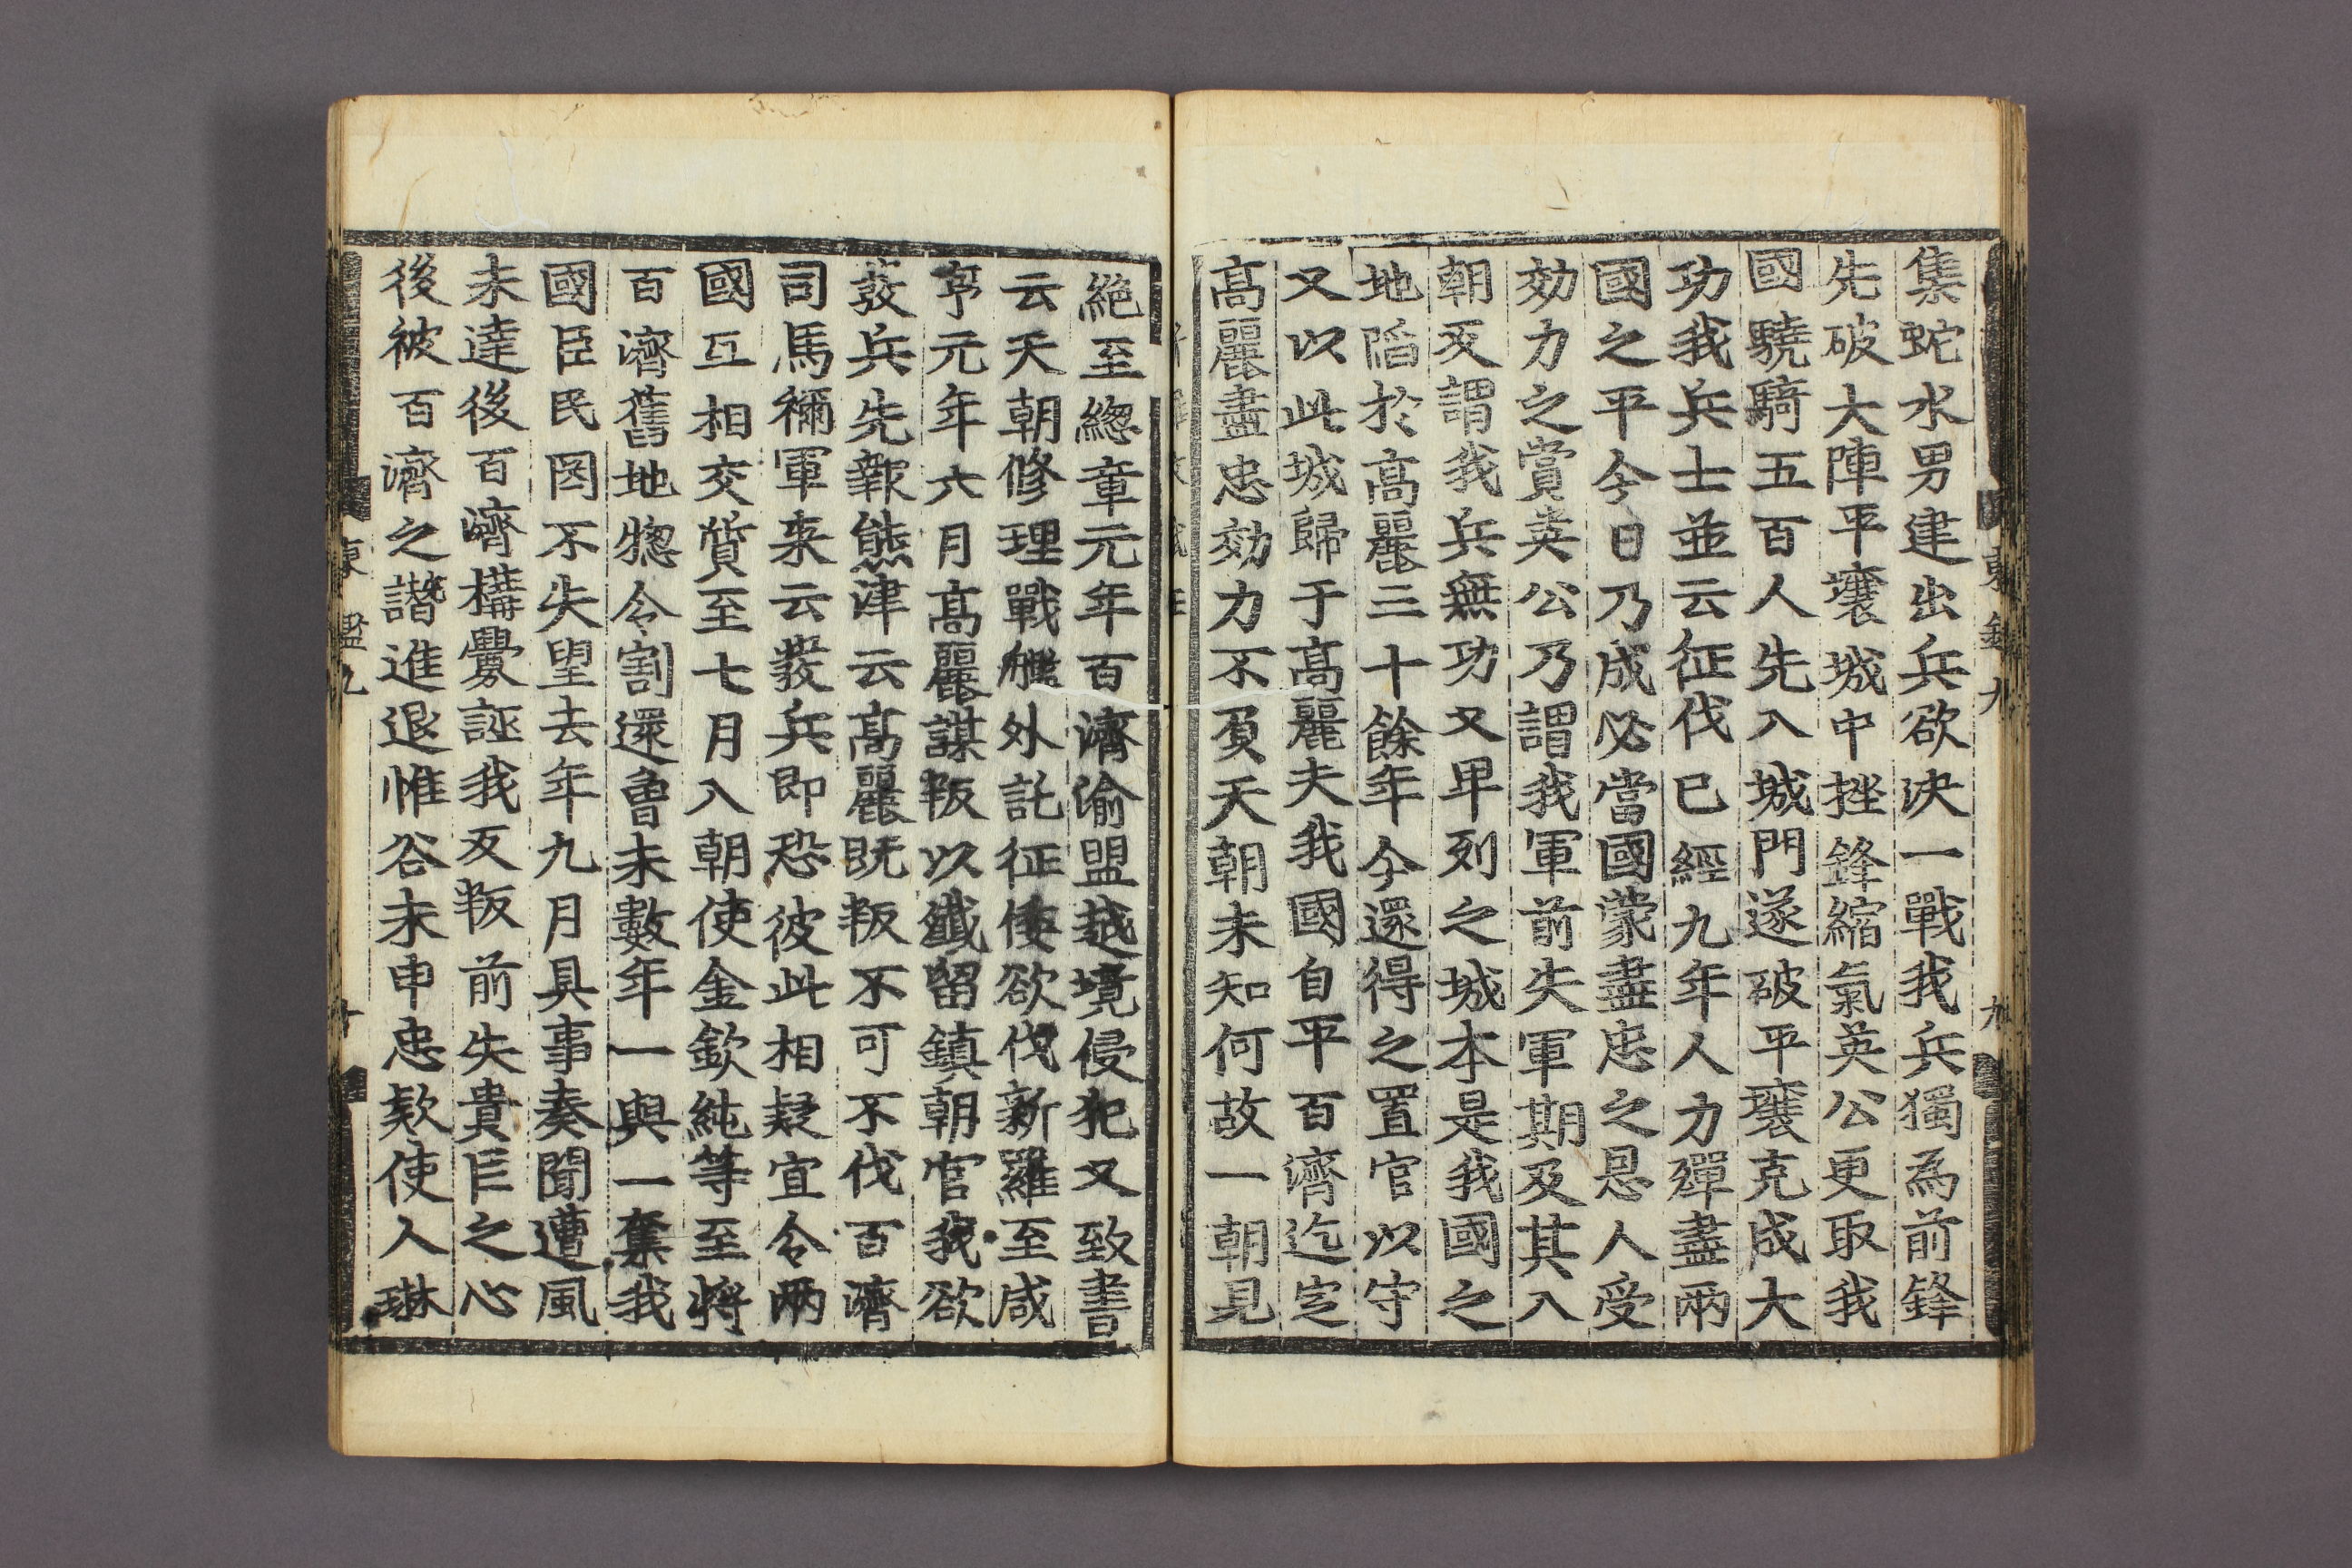 集蛇水男建出兵欲決一戰我兵獨為前鋒
先破大陣平壤城中挫鋒縮氣英公更取我
國驍騎五百人先入城門遂破平壤克成大
功我兵士並云征伐已經九年人力殫盡兩
國之平今日乃成必當國蒙盡忠之恩人受
効力之賞英公乃謂我軍前失軍期及其入
朝又謂我兵無功又卑列之城本是我國之
地陷於高麗三十餘年今還得之置官以守
又以此城歸于高麗夫我國自平百濟迄定
高麗盡忠効力不負天朝未知何故一朝見
絕至緫章元年百濟偷盟越境侵犯又致書
云天朝修理戰艦外託征倭欲伐新羅至咸
亨元年六月高麗謀叛以纖留鎮朝官我欲
發兵先報熊津云高麗既叛不可不伐百濟
司馬禰軍来云發兵即恐彼此相疑宜令兩
國互相交質至七月入朝使金欽純等至將
百濟舊地揔令割還曾未數年一與一奪我
國臣民罔不失望去年九月具事奏聞遭風
未達後百濟構釁誣我反叛前失貴臣之心
後被百濟之譖進退惟谷未申忠款使人琳
東鑑九
九
東鑑九
十